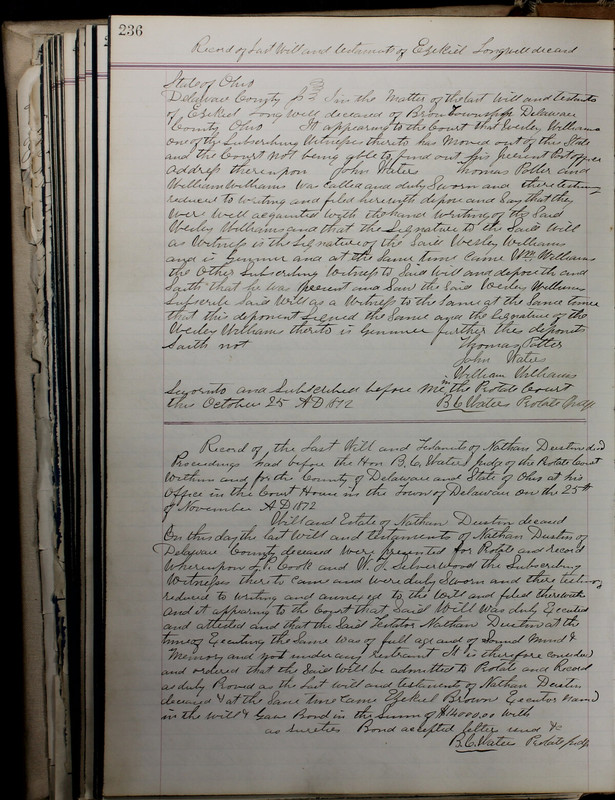 236
Record of Last Will and testament of Ezekiel Longwell decead
State of Ohio
Delaware County ss In the Matter of the last Will and testamts
of Ezekiel Longwell deceased of Brown Township Delaware
County Ohio It appearing to the Court that Wesley Williams
one of the Subscribing Witnesses thereto has Moved out of the State
and the Court not being able to find out his present Post office
address thereupon John Waters Thomas Potter and
William Williams was Called and duly Sworn and there testimony
reduced to writing and filed herewith depose and Say that they
Were Well acquainted with the hand writing of the Said
Wesley Williams and that the Signature to the Said Will
as Witness is the Signature of the Said Wesley Williams
and is Genuine and at the Same time Came Wm Williams
the Other Subscribing Witness to Said Will and deposeth and
Saith that he was present and Saw the Said Wesley Williams
Subscribe Said Will as a Witness to the Same at the Same time
that this deponent Signed the Same and the Signature of the
Wesley Williams thereto is Genuine further this deponts
Saith not
Thomas Potter
John Waters
William Williams
Sworn to and Subscribed before Me in the Probate Court
this October 25 AD 1872 B.C. Waters Probate Judge
Record of the Last Will and Testaments of Nathan Dustin decd
Proceedings had before the Hon B.C. Waters Judge of the Probate Court
Within and for the County of Delaware and State of Ohio at his
Office in the Court House in the Town of Delaware on the 25th
of November AD 1872
Will and Estate of Nathan Dustin deceased
On this day the last Will and testaments of Nathan Dustin of
Delaware County deceased Were presented for Probate and record
Whereupon Cook and Silverwood the Subscribing
Witnesses thereto Came and were duly Sworn and there testimony
reduced to writing and annexed to the Will and filed therewith
and it appearing to the Court that Said Will was duly Executed
and attested and that the Said Testator Nathan Dustin at the
time of Executing the Same was of full age and of Sound Mind &
Memory and not under any restraint It is therefore Considered
and ordered that the Said Will be admitted to Probate and Record
as duly Proved as the Last will and testaments of Nathan Dustin
deceased & at the Same time Came Ezekiel Brown Executor Named
in the will & Gave Bond in the Sum of $14000.00 With
as Sureties Bond accepted letter issued &c
B.C. Waters Probate Judge